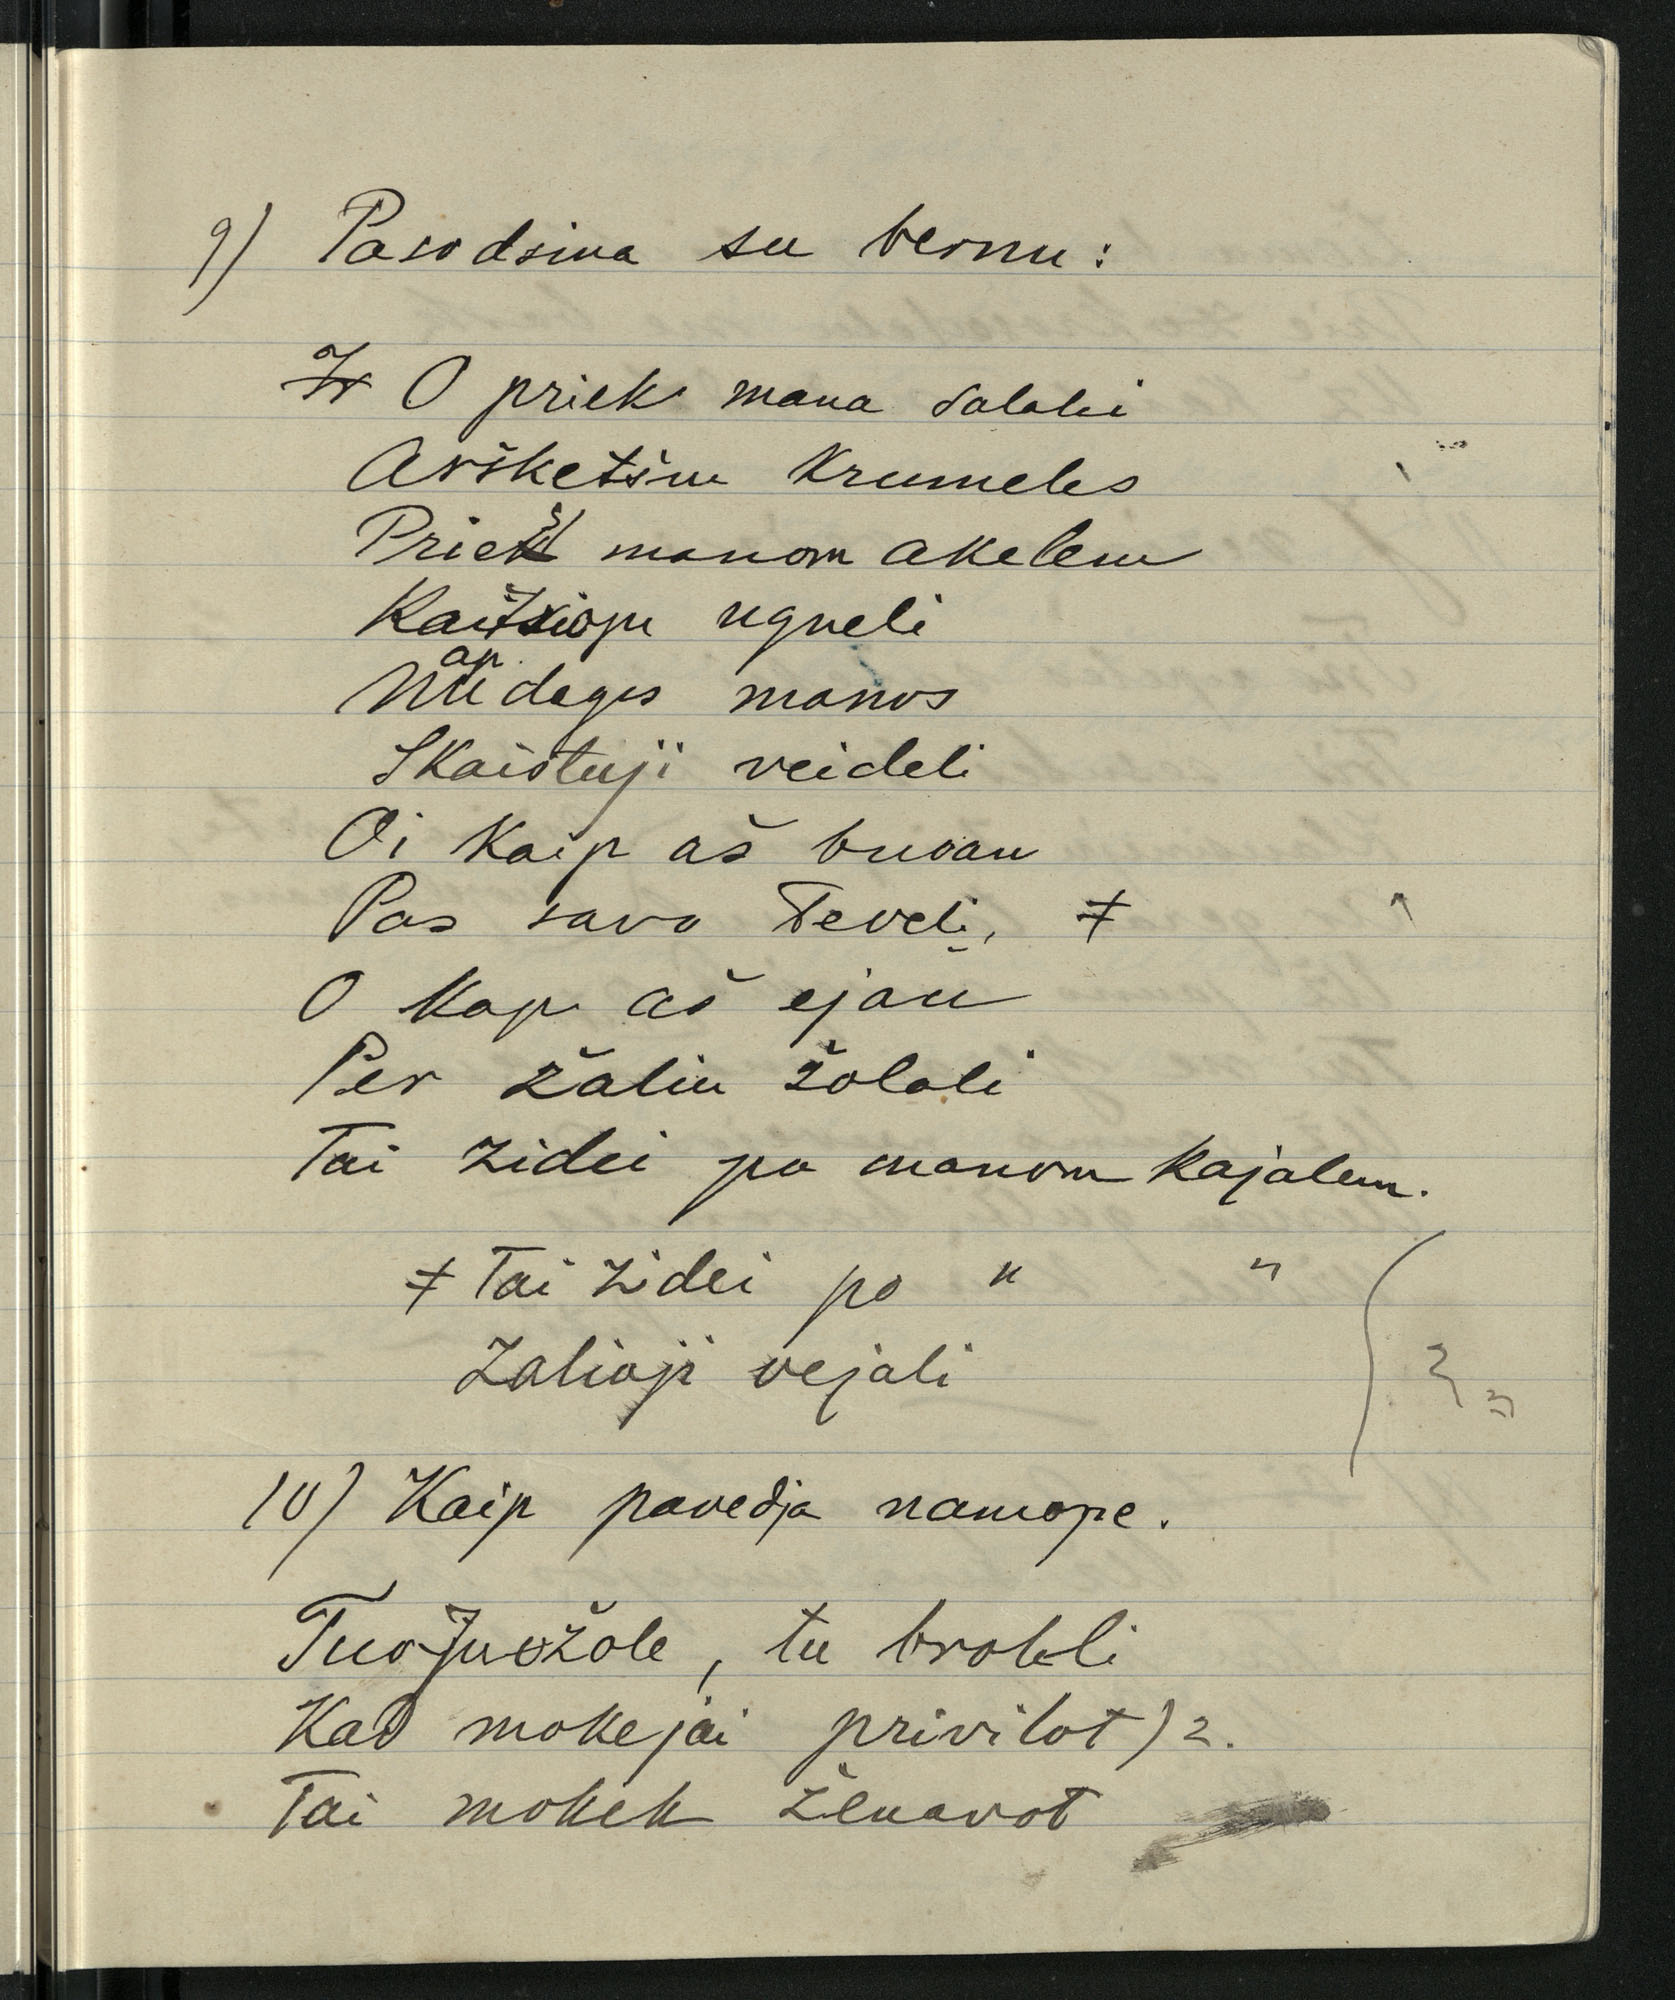 9) Pasodsina su bernu:
O priek mana salaki
Aršketsiu Krumeles
Prieš manom akelem
ugneli
Apdegs manos
Skaistuji veideli
Oi Kaip aš buvau
Pas savo Teveli, ≠
O Kap aš ejau
Per žaliu žolali
Tai zidei po manom Kajalem.
≠ Tai zidei po " "
Zalioji vejali
10) Kaip pavedja namope.
Tu Juožole, tu broleli
Kad mokejai privilot) 2.
Tai mokek ženavot